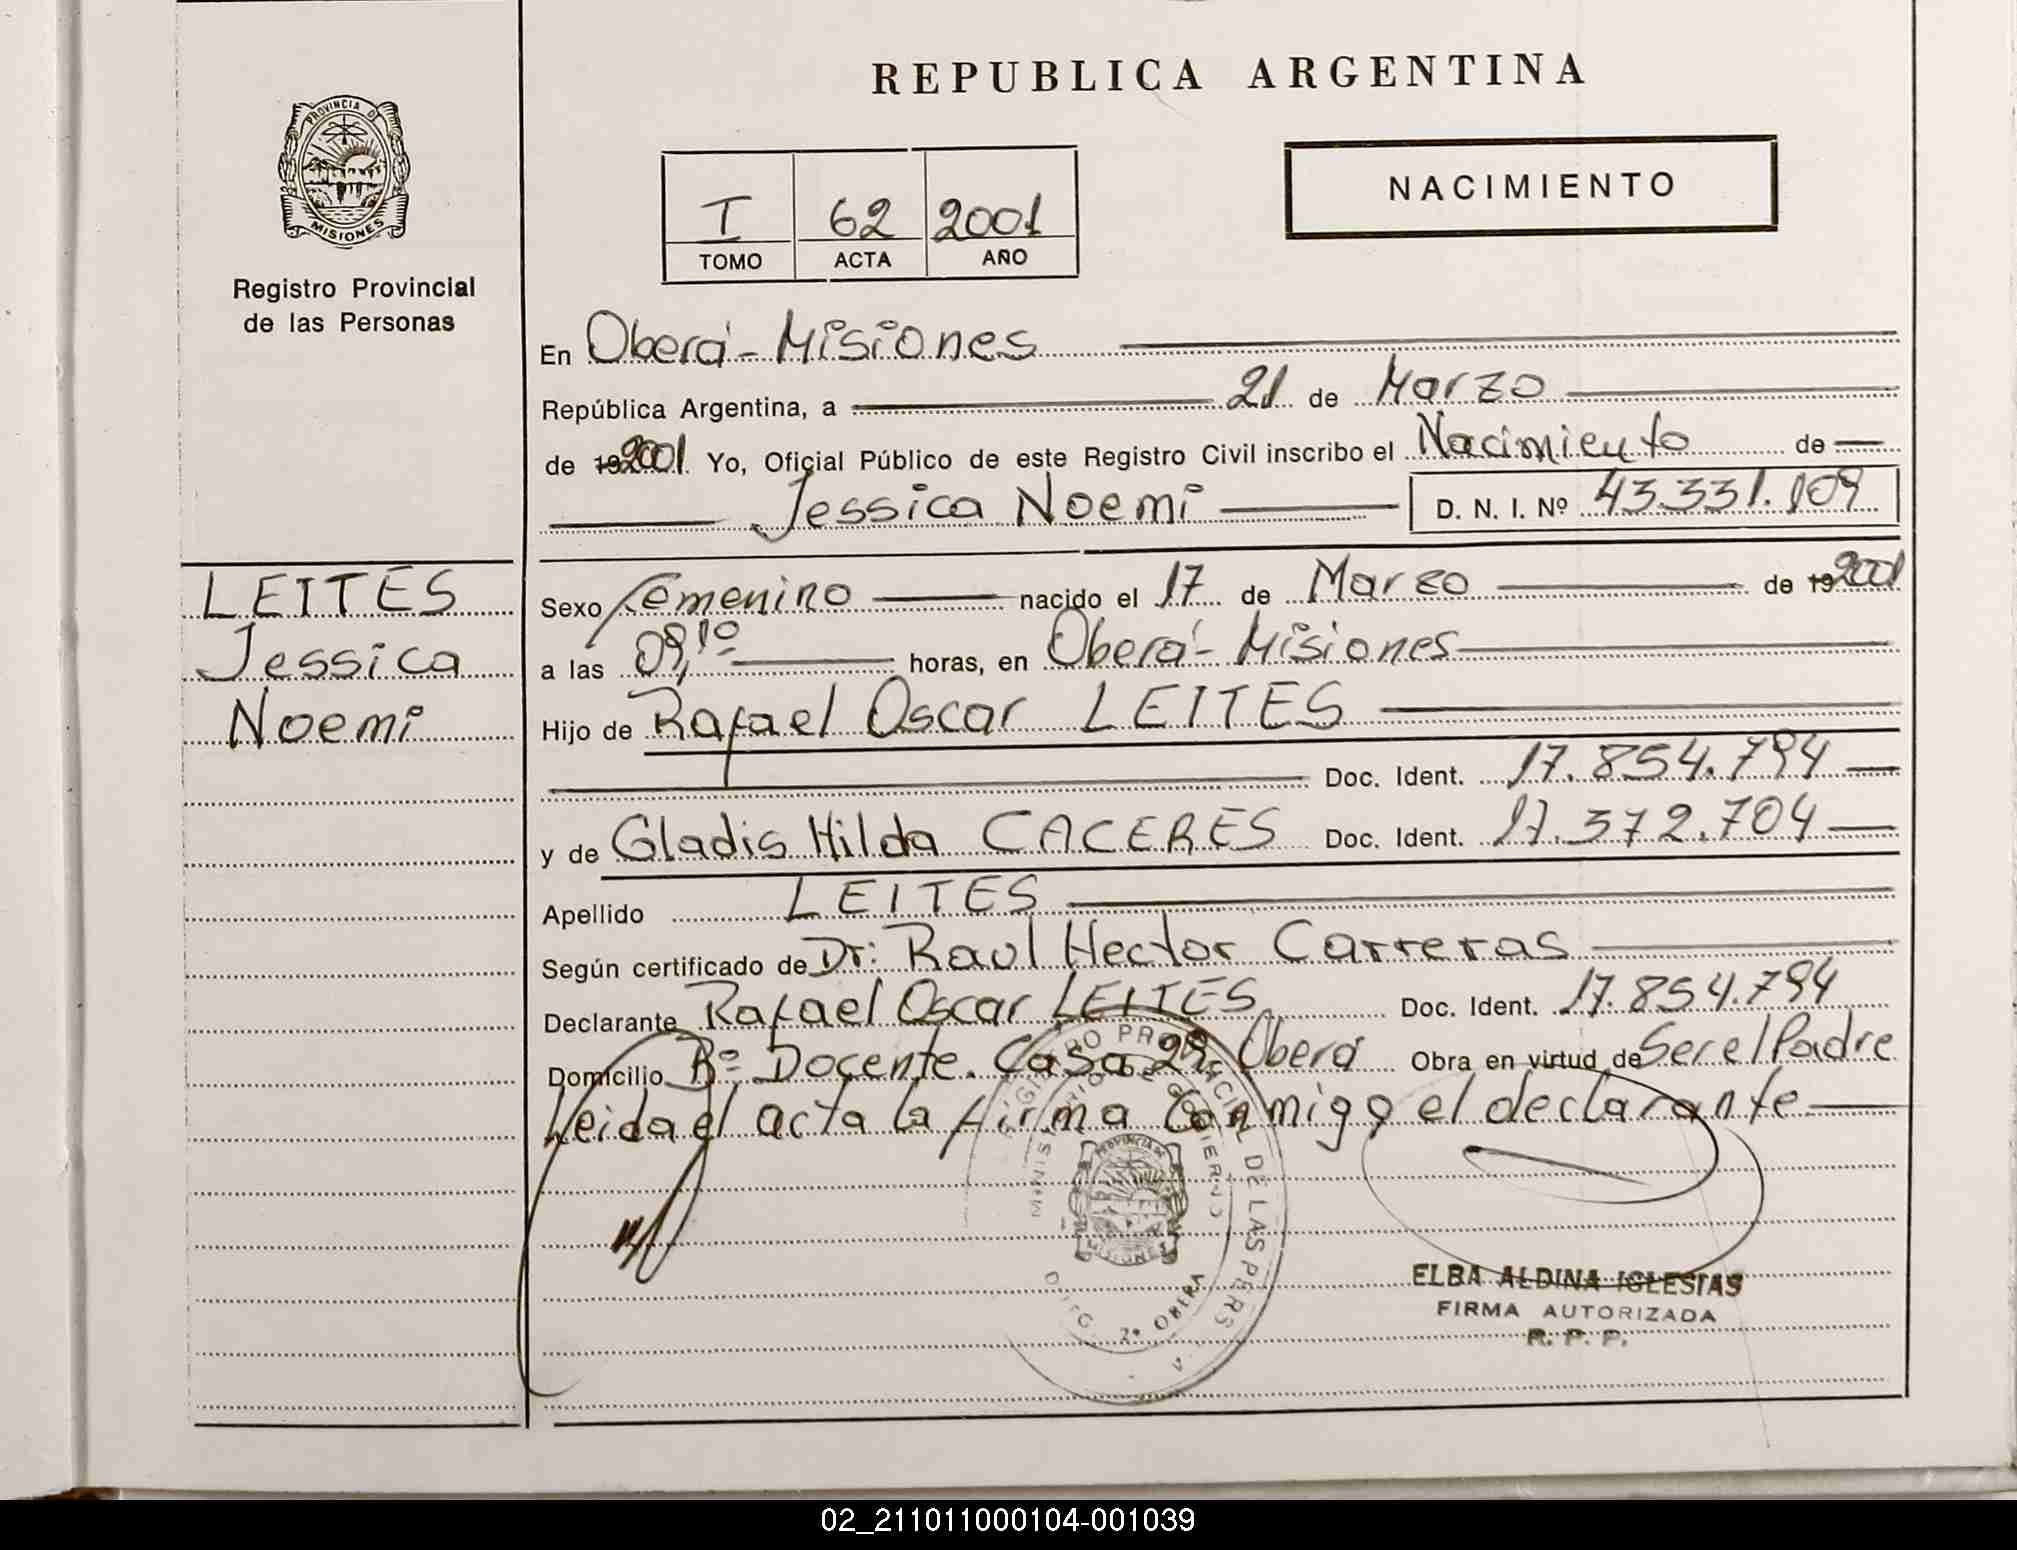 REPUBLICA ARGENTINA
PROVINCIA DE
MISIONES
Registro Provincial
de las Personas
I 62 2001
TOMO ACTA AÑO
NACIMIENTO
En Oberá - Misiones
República Argentina, a 21 de Marzo
de 19 2001. Yo, Oficial Público de este Registro Civil inscribo el Nacimiento de
Jessica Noemi D. N. I. Nº 43.331.109
LEITES
Jessica
Noemi
Sexo Femenino nacido el 17 de Marzo de 19 2001
a las 09,10 horas, en Oberá - Misiones
Hijo de Rafael Oscar LEITES
Doc. Ident. 17.854.794
y de Gladis Hilda CACERES Doc. Ident. 17.372.704
Apellido LEITES
Según certificado de Dr: Raul Hector Carreras
Declarante Rafael Oscar LEITES Doc. Ident. 17.854.794
Domicilio Bº Docente. Casa 29, Oberá Obra en virtud de Ser el Padre
Leida el acta la firma Conmigo el declarante
REGISTRO PROVINCIAL DE LAS PERS
MINISTERIO DE GOBIERNO
PROVINCIA DE
MISIONES
2ª OBERA
ELBA ALDINA IGLESIAS
FIRMA AUTORIZADA
R. P. P.
02_211011000104-001039